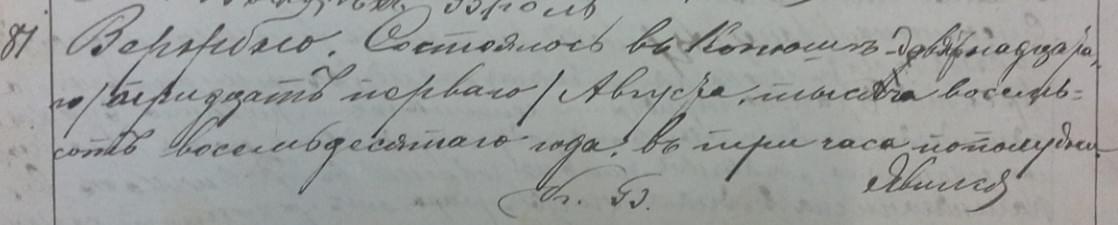 81 Вержбно. Состоялось въ Конюшѣ девятнадцата
го /тридцать перваго/ Августа, тысяча восемь=
сотъ восемьдесятаго года, въ три часа пополудни
Явился